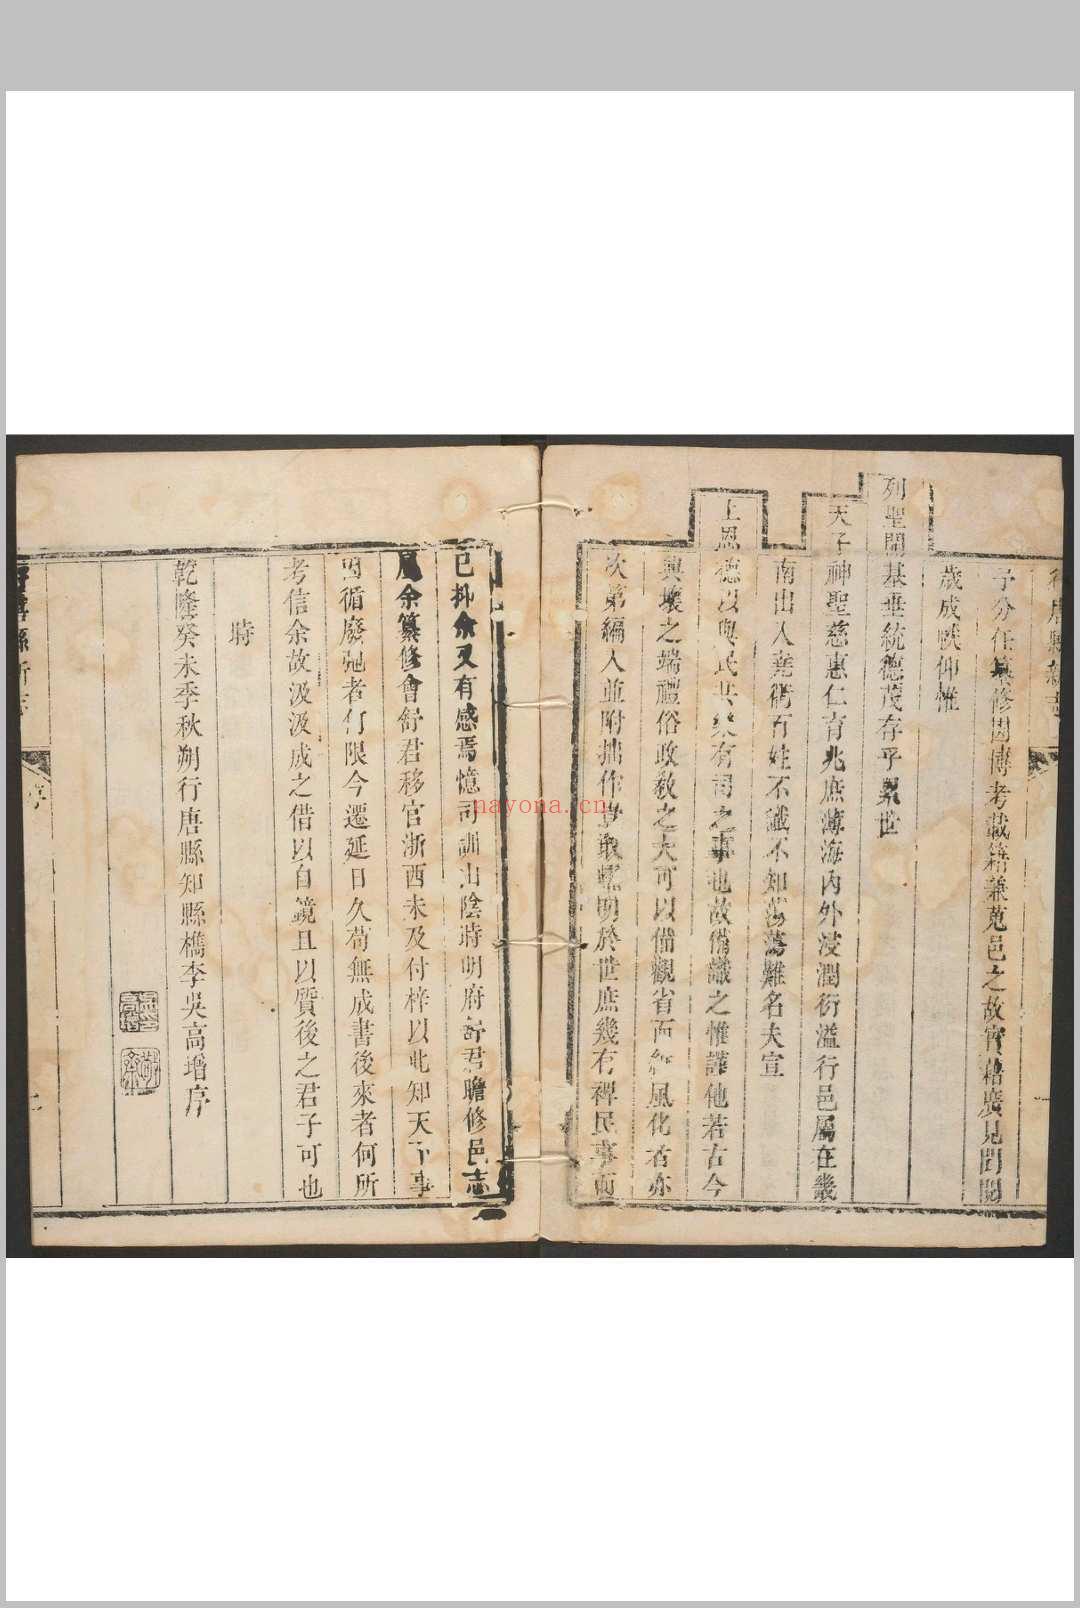 予分任纂修因博考載籍兼蒐邑之故實藉廣見聞閱
歲成帙仰惟
列聖開基垂統德茂存乎累世
天子神聖慈惠仁育兆庶薄海內外浸潤衍溢行邑屬在畿
南出入堯衢百姓不識不知蕩蕩難名夫宣
上恩德以與民共樂有司之事也故備識之惟謹他若古今
興壞之端禮俗政教之大可以備觀省而 風化者亦
次第編入並附拙作 敢 明於世庶幾有裨民事而
已抑余又有感焉憶司訓山陰時明府舒君瞻修邑志
屬余纂修會舒君移官浙西未及付梓以此知天下事
因循廢弛者何限今遷延日久苟無成書後來者何所
考信余故汲汲成之借以自鏡且以質後之君子可也
時
乾隆癸未季秋朔行唐縣知縣檇李吳高增序
行唐縣新志
序
nayona.cn